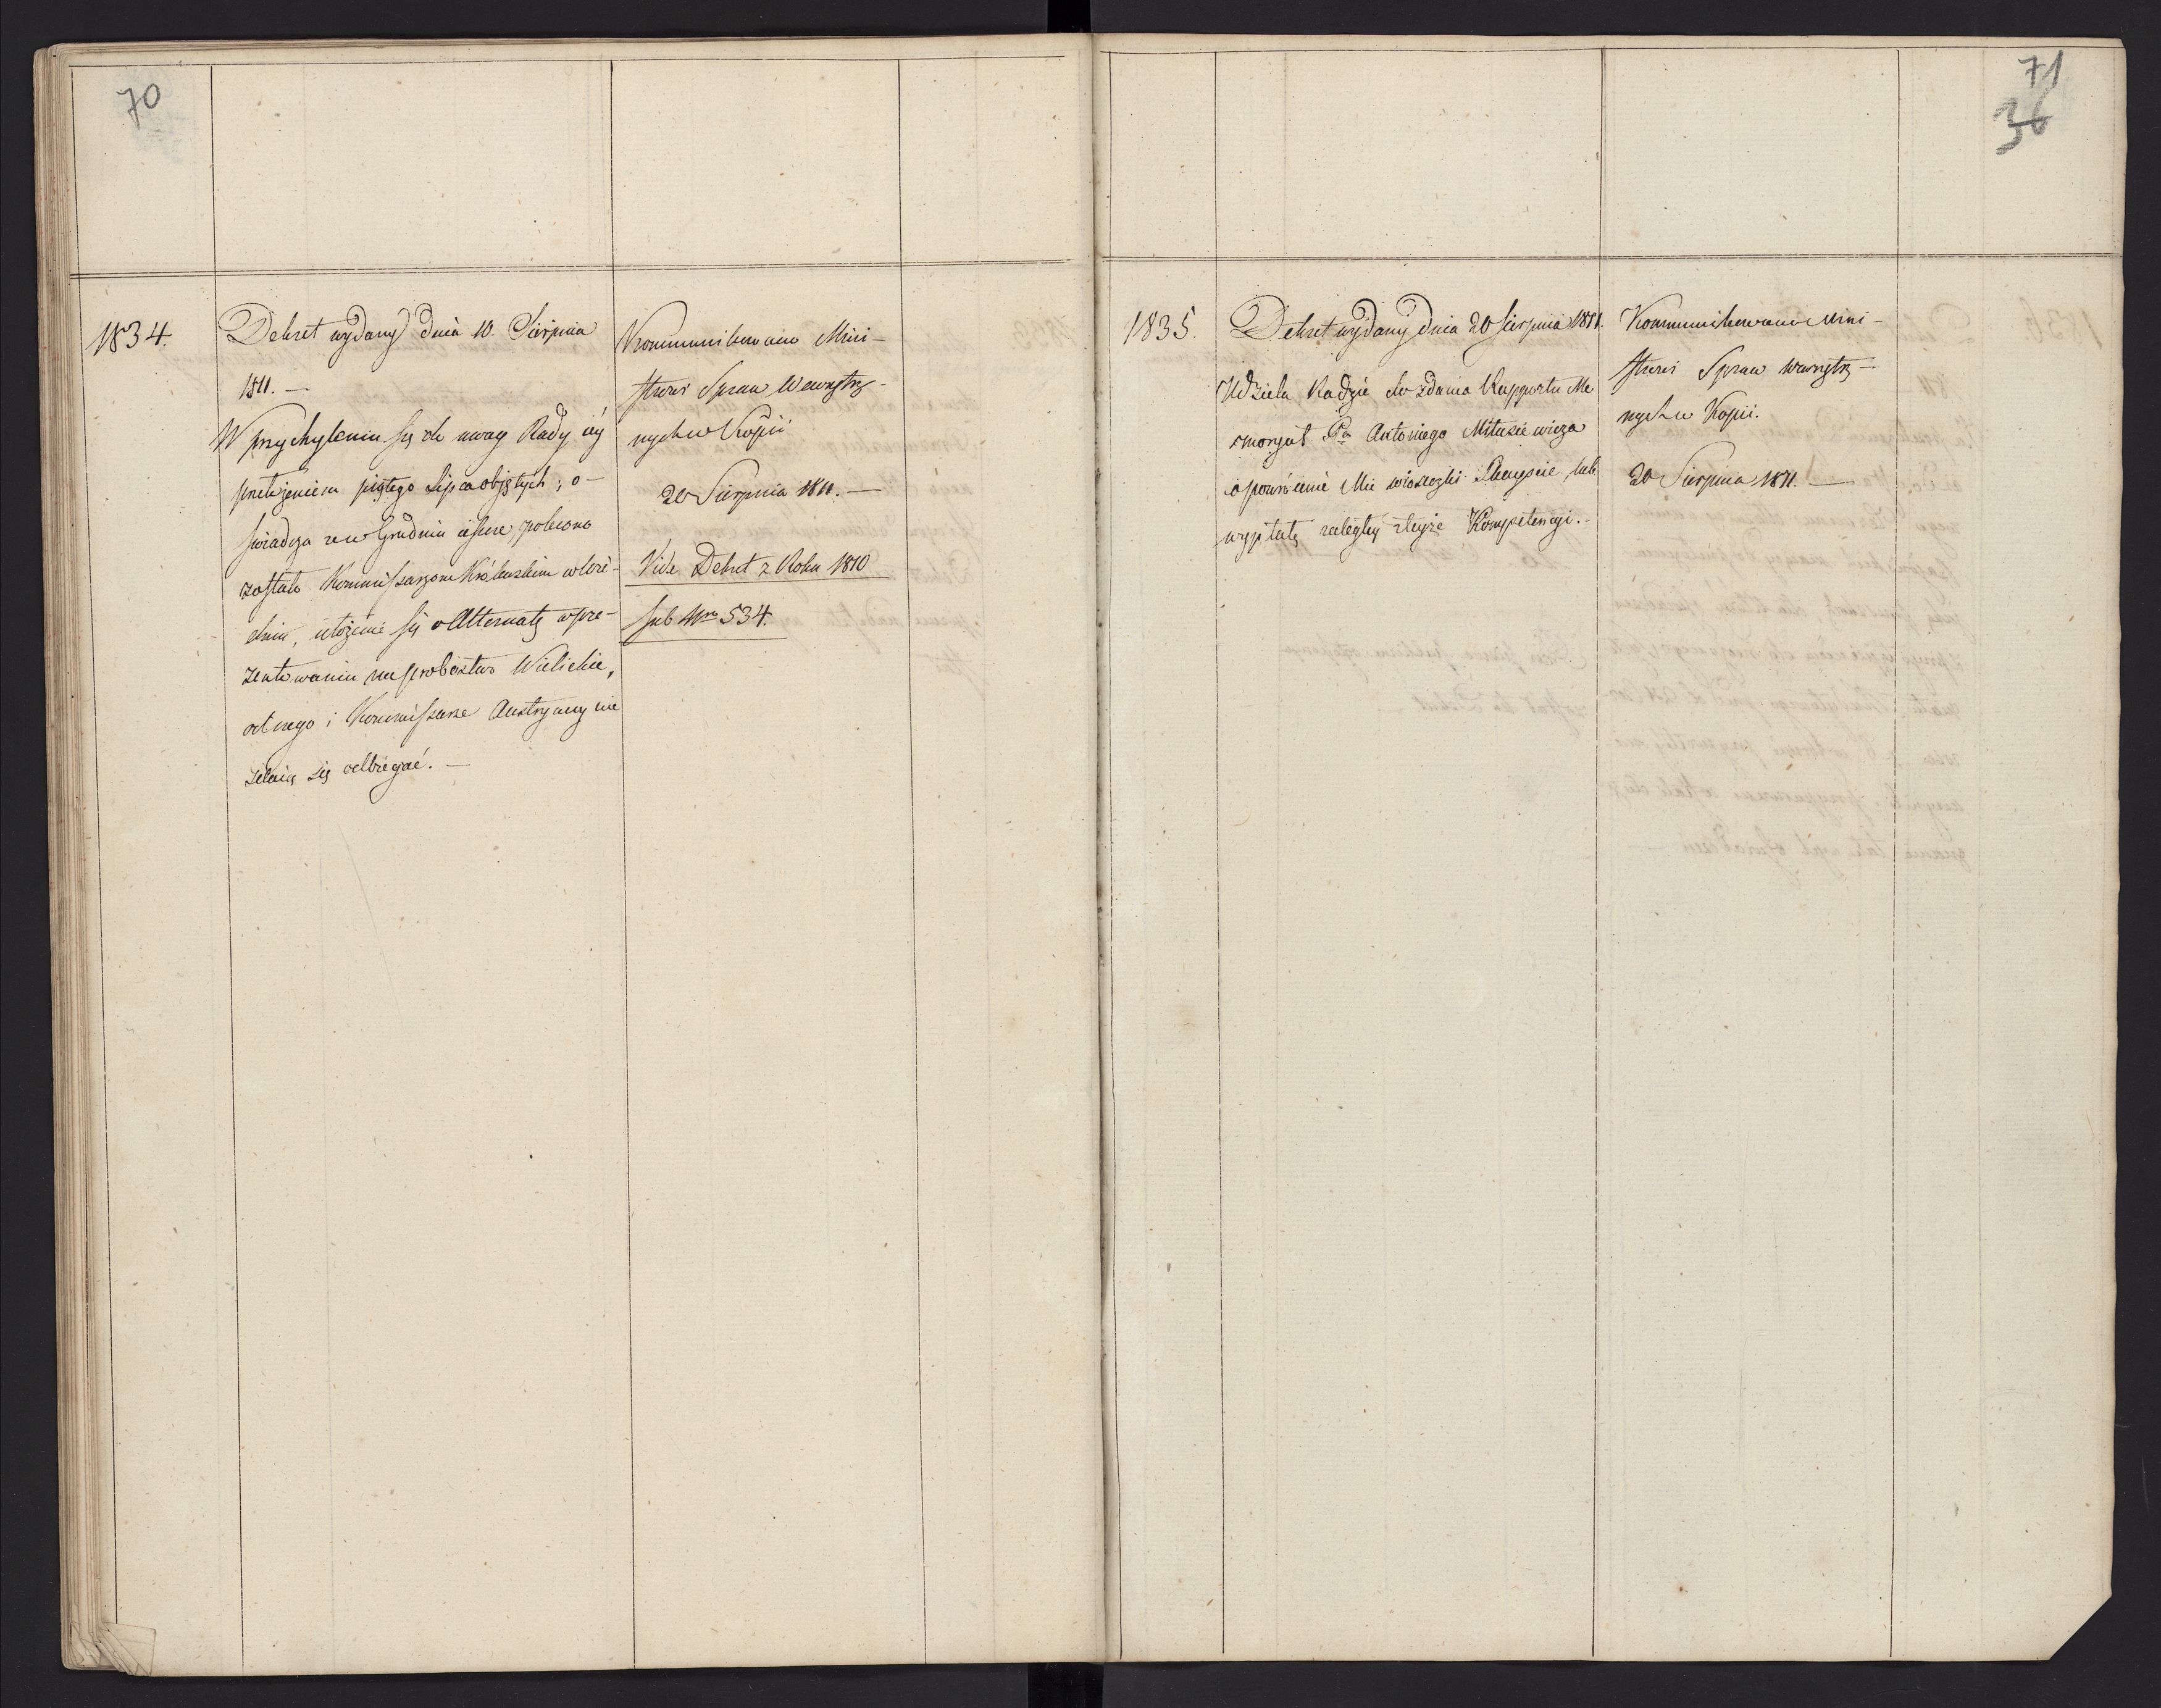 70
1834.
Dekret wydany dnia 10. Sierpnia
1811. —
W przychyleniu się do uwag Rady iéy
przełożeniem piątego Lipca objętych; o-
świadcza że w Grudniu ieszcze, polecono
zostało Kommissarzom Królewskim w Wie-
dniu, ułożenie się o Alternatę w pre-
zentowaniu na probostwo Wielickie,
od czego i Kommissarze Austryaccy nie
zdaią się odbiegać. —
Kommunikowano Mini-
strowi Spraw Wewnętrz-
nych w Kopii
20 Sierpnia 1811. —
Vide Dekret z Roku 1810
sub Nro 534.
71
36
1835.
Dekret wydany dnia 20 Sierpnia 1811.
Udziela Radzie do zdania Rapportu Me-
moryał Pa Antoniego Mitusiewicza
o powrócenie Mu wioseczki lub
wypłatę zaległey z teyże Kompetencyi. -
Kommunikowano Mini-
strowi Spraw Wewnętrz-
nych w Kopii.
20 Sierpnia 1811. —